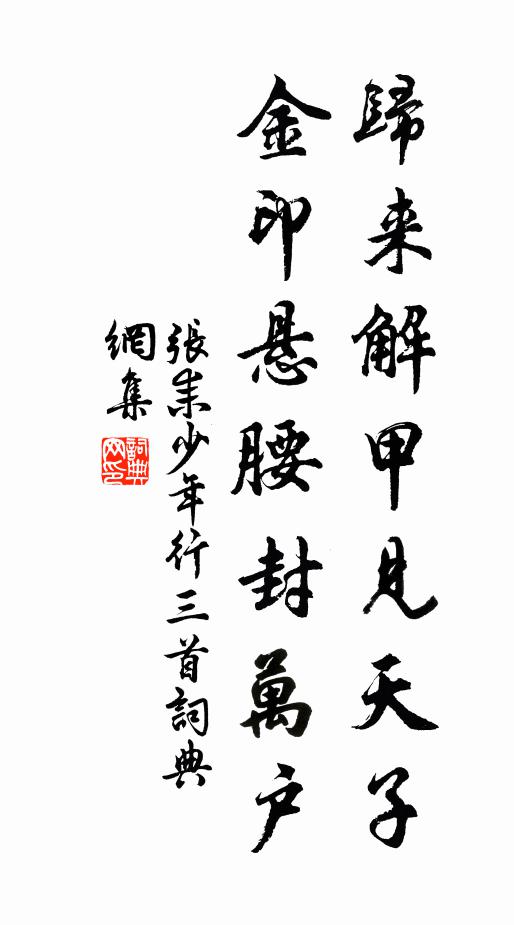 歸来解甲見天子
金印悬腰封萬户
張耒少年行三首詞典
網集
詞典
网印